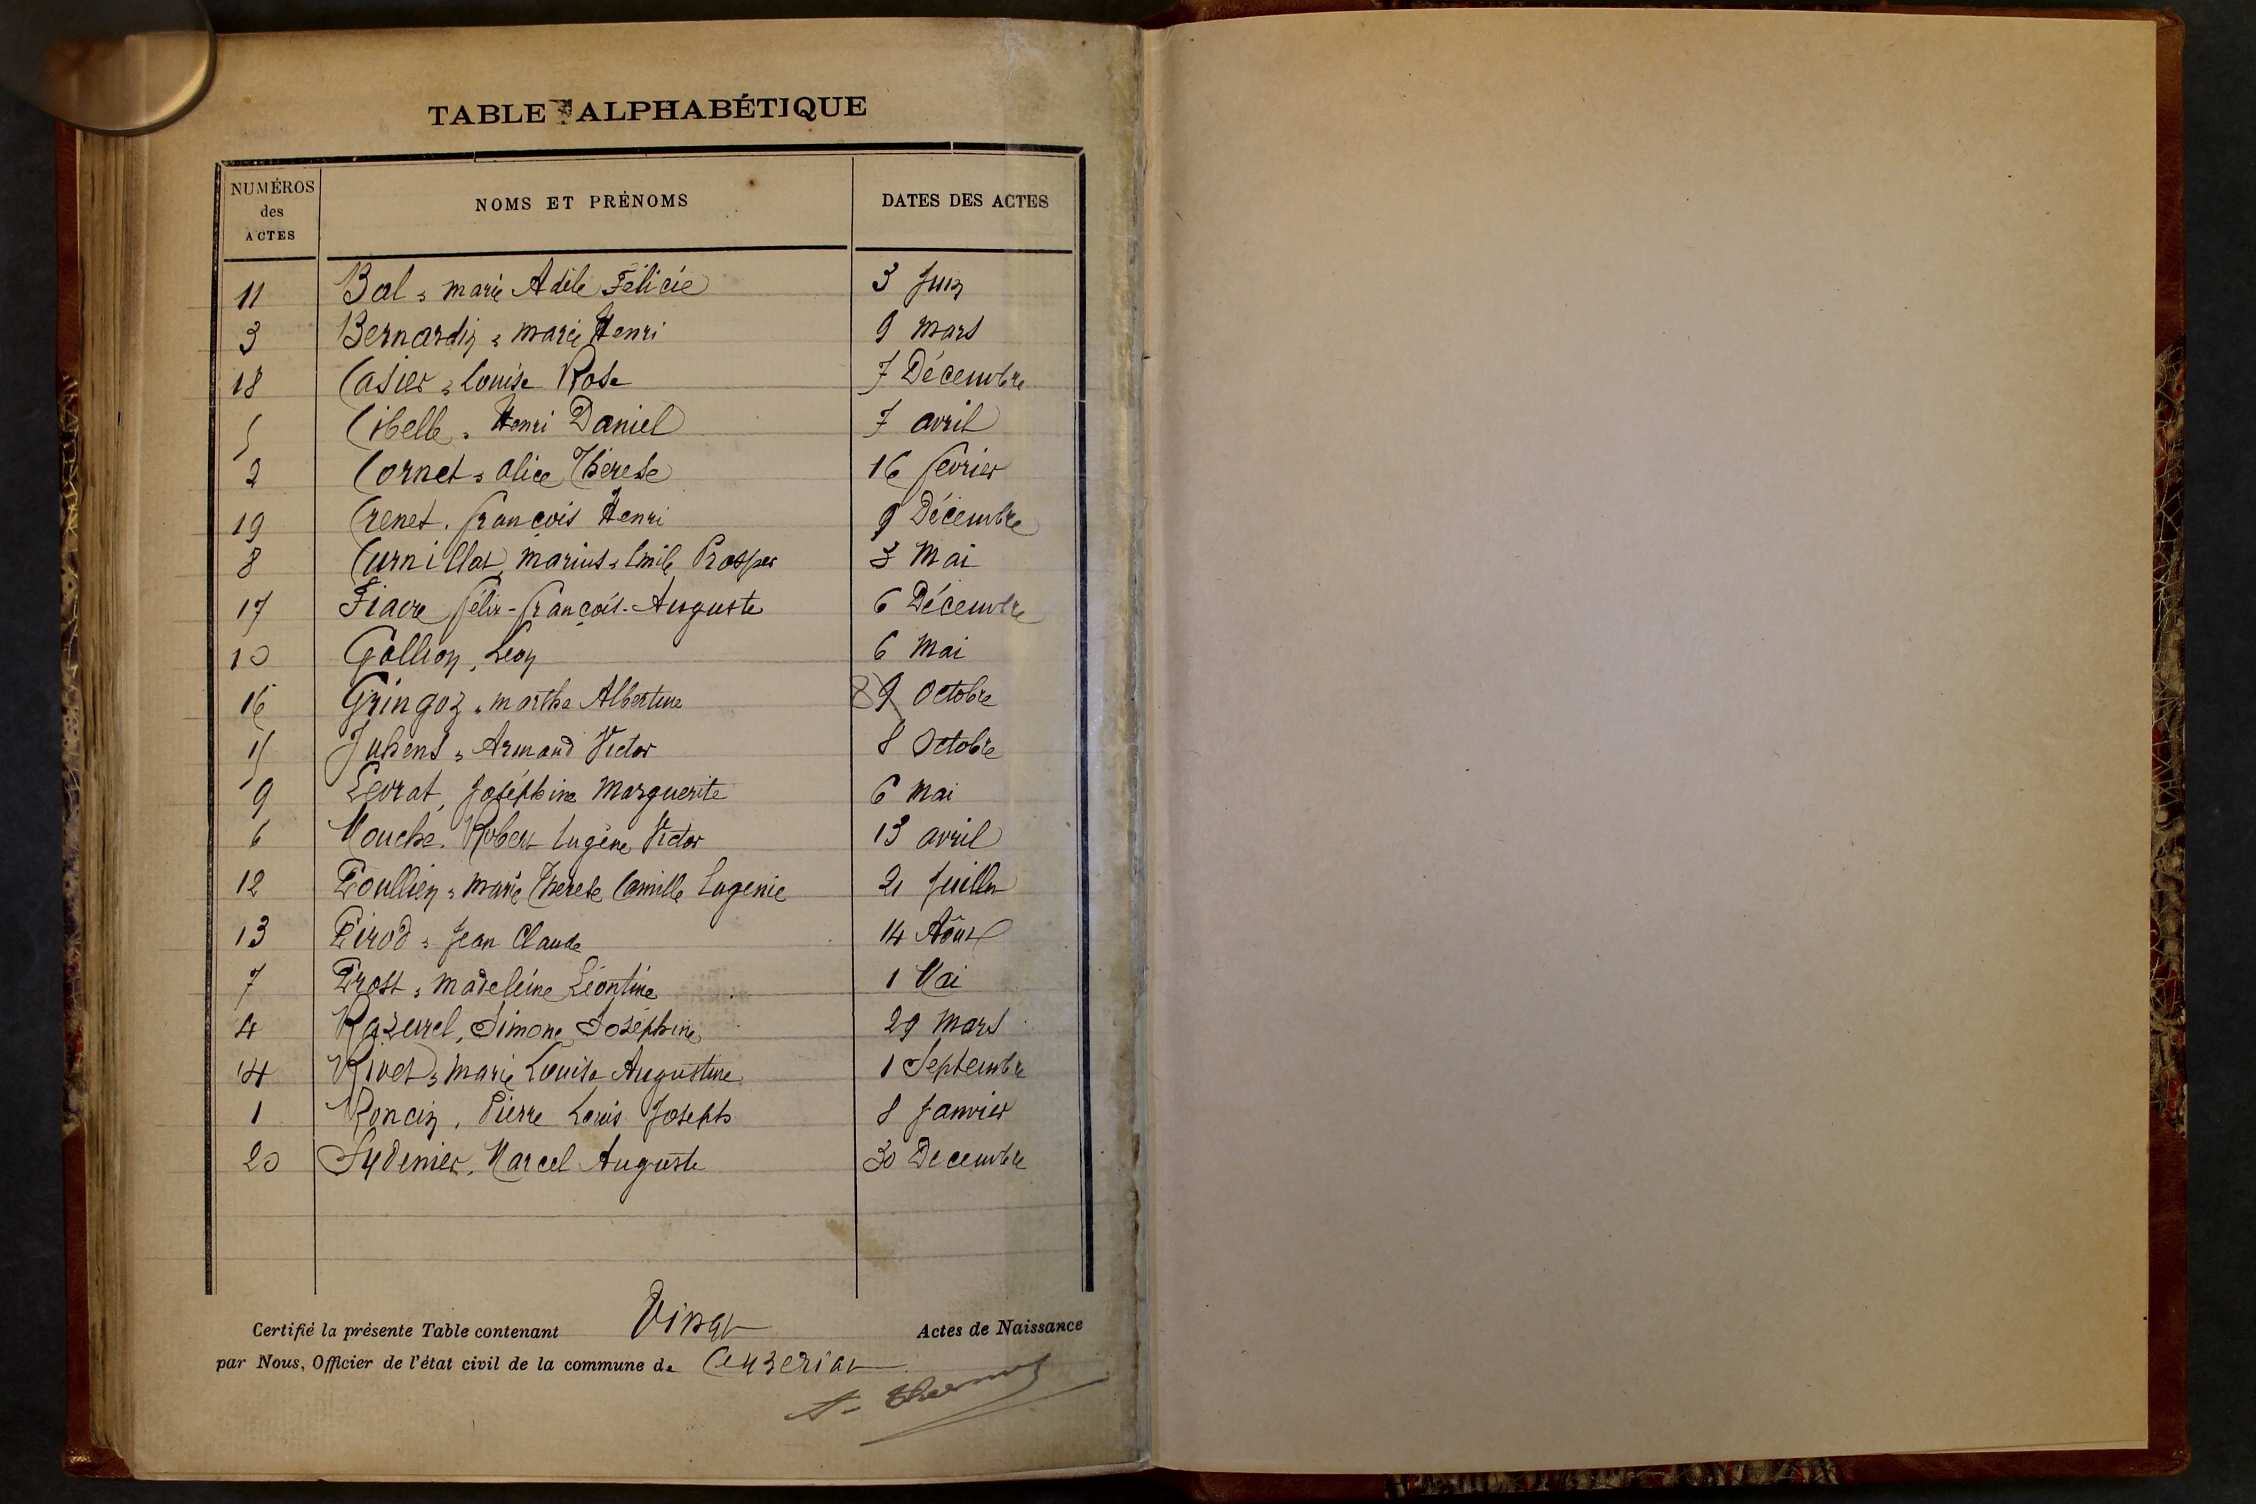 TABLE ALPHABÉTIQUE
NUMÉROS des ACTES NOMS ET PRÉNOMS DATES DES ACTES
11 Bal, marie Adèle Félicie 3 Juin
3 Bernardin, marie Henri 9 mars
18 Casier, Louise Rose 7 Décembre
5 Cibelle, Henri Daniel 7 avril
2 Cornet, alice Thérese 16 février
19 Crenet, françois Henri 9 Décembre
8 Curnillat, Marius, Emile Prosper 3 Mai
17 Fiacre félix-françois-Auguste 6 Décembre
10 Gallion, Léon 6 Mai
16 Gringoz, marthe Albertine 8 9 Octobre
15 Juhens, Armand Victor 8 Octobre
9 Levrat, Joséphine Marguerite 6 Mai
6 Mouche, Robert Eugène Victor 13 avril
12 Poullien, marie Therese Camille Eugenie 21 Juillet
13 Pirod, Jean Claude 14 Août
7 Prost, madeleine Léontine 1 Mai
4 Razurel, Simone Joséphine 29 mars
14 Rivet, marie Louise Augustine 1 Septembre
1 Roncin, Pierre Louis Joseph 8 Janvier
20 Sydenier, Marcel Auguste 30 Decembre
Certifié la présente Table contenant Vingt Actes de Naissance
par Nous, Officier de l'état civil de la commune de Cuzeriat